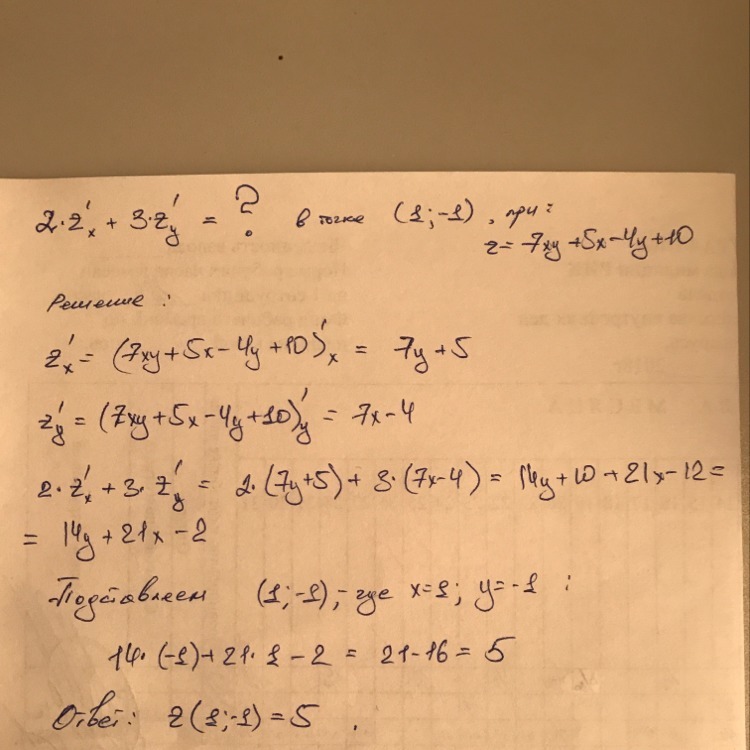 2·z'ₓ + 3·z'ᵧ = ? в точке (1;-1), при:
z = 7xy+5x-4y+10
Решение:
z'ₓ = (7xy+5x-4y+10)'ₓ = 7y+5
z'ᵧ = (7xy+5x-4y+10)'ᵧ = 7x-4
2·z'ₓ + 3·z'ᵧ = 2·(7y+5)+3·(7x-4) = 14y+10+21x-12=
= 14y+21x-2
Подставляем (1;-1),- где x=1; y=-1 :
14·(-1)+21·1-2 = 21-16 = 5
Ответ: z(1;-1)=5.